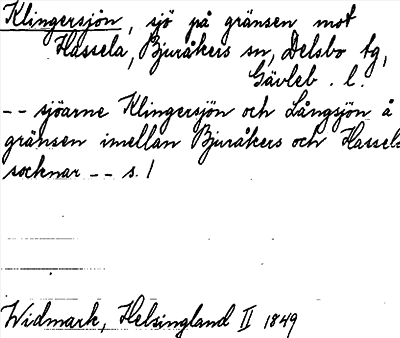 Klingersjön, sjö på gränsen mot
Hassela, Bjuråkers sn, Delsbo tg,
Gävleb. l.
-- sjöarne Klingersjön och Långsjön å
gränsen imellan Bjuråkers och Hassela
socknar -- s. 1
Widmark, Helsingland II 1849